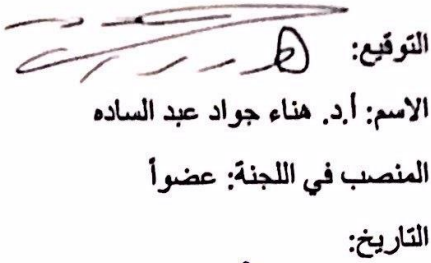 التوقيع:
الاسم: أ.د. هناء جواد عبد الساده
المنصب في اللجنة: عضواً
التاريخ: